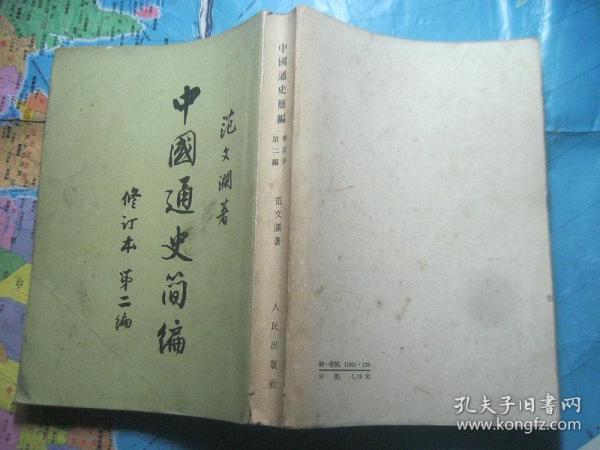 范文瀾著
中國通史简編
修订本 第二編
中國通史簡編
修訂本
第二編
范文瀾著
人民出版社
統一書號：11001·238
定價：
孔夫子旧书网
www.kongfz.com